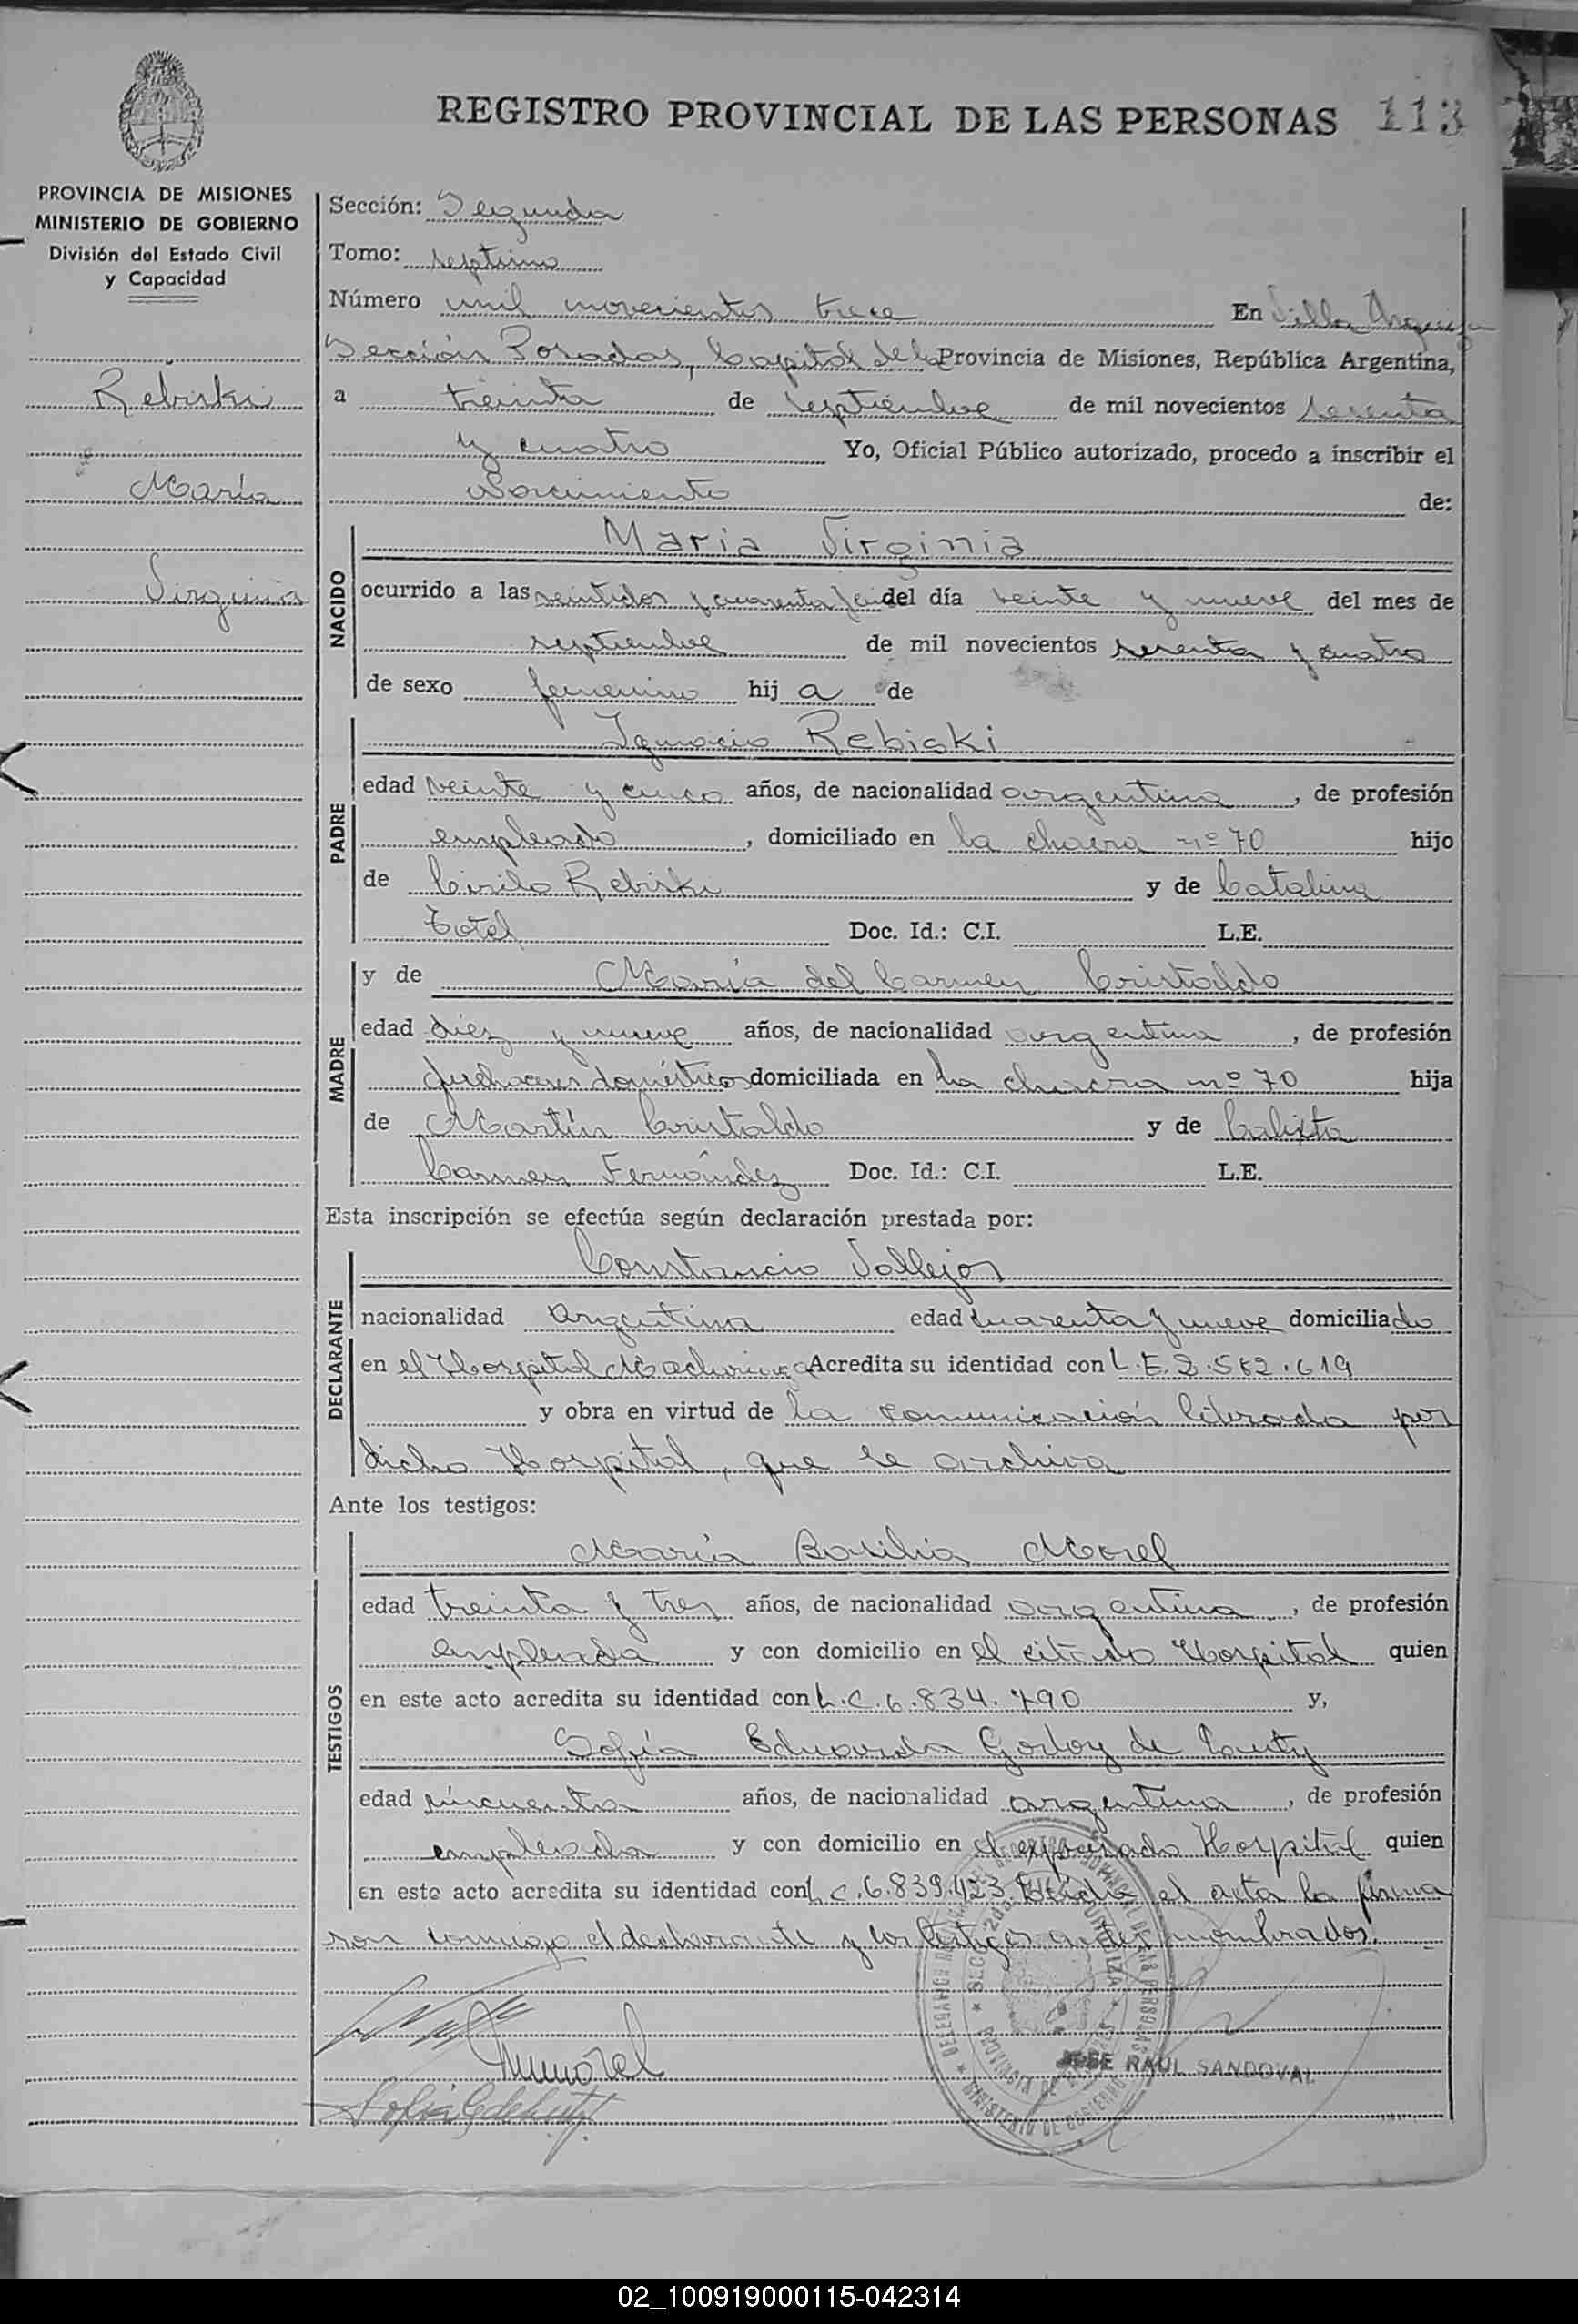 REGISTRO PROVINCIAL DE LAS PERSONAS 113
PROVINCIA DE MISIONES
MINISTERIO DE GOBIERNO
División del Estado Civil
y Capacidad
Rebiski
María
Virginia
Sección: Segunda
Tomo: septimo
Número mil novecientos trece En Villa Urquiza
Sección Posadas, Capital de la Provincia de Misiones, República Argentina,
a treinta de septiembre de mil novecientos sesenta
y cuatro Yo, Oficial Público autorizado, procedo a inscribir el
Nacimiento de:
NACIDO
Maria Virginia
ocurrido a las veintidos y cuarenta del día veinte y nueve del mes de
septiembre de mil novecientos sesenta y cuatro
de sexo femenino hij a de
PADRE
Ignacio Rebiski
edad veinte y cinco años, de nacionalidad argentina, de profesión
empleado, domiciliado en la chacra nº 70 hijo
de Cirilo Rebiski y de Catalina
Totel Doc. Id.: C.I. L.E.
MADRE
y de María del Carmen Cristaldo
edad diez y nueve años, de nacionalidad argentina, de profesión
quehaceres domésticos domiciliada en la chacra nº 70 hija
de Martín Cristaldo y de Calixta
Carmen Fernández Doc. Id.: C.I. L.E.
Esta inscripción se efectúa según declaración prestada por:
DECLARANTE
Constancio Vallejos
nacionalidad Argentina edad cuarenta y nueve domiciliado
en el Hospital Madariaga Acredita su identidad con L.E. 2.582.619
y obra en virtud de la comunicación librada por
dicho Hospital, que se archiva
Ante los testigos:
TESTIGOS
María Basilia Morel
edad treinta y tres años, de nacionalidad argentina, de profesión
empleada y con domicilio en el citado Hospital quien
en este acto acredita su identidad con L.C. 6.834.790 y,
Sofía Eduarda Godoy de
edad cincuenta años, de nacionalidad argentina, de profesión
empleada y con domicilio en el expresado Hospital quien
en este acto acredita su identidad con L.C. 6.839.423. Leída el acta la firma
ron conmigo el declarante y los testigos antes nombrados.
JOSE RAUL SANDOVAL
02_100919000115-042314